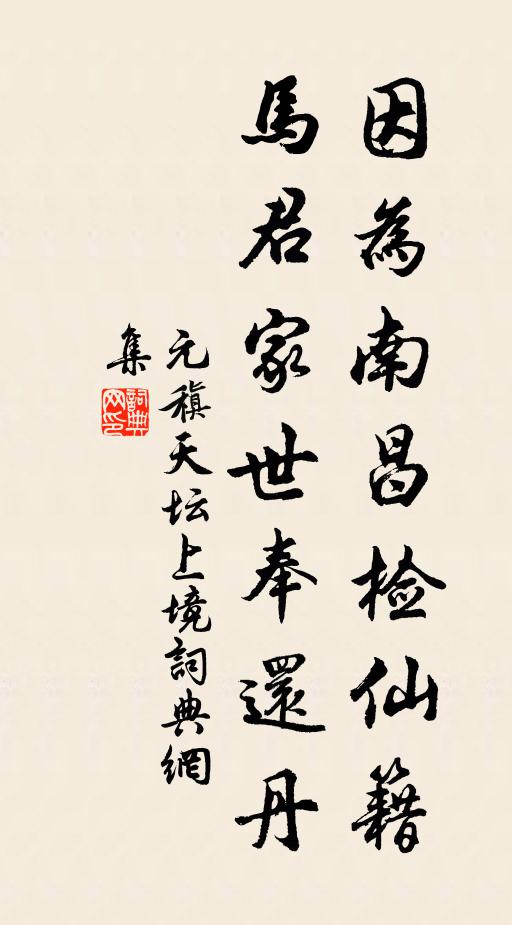 因為南昌檢仙籍
馬君家世奉還丹
元稹天坛上境詞典網
集
詞典網印